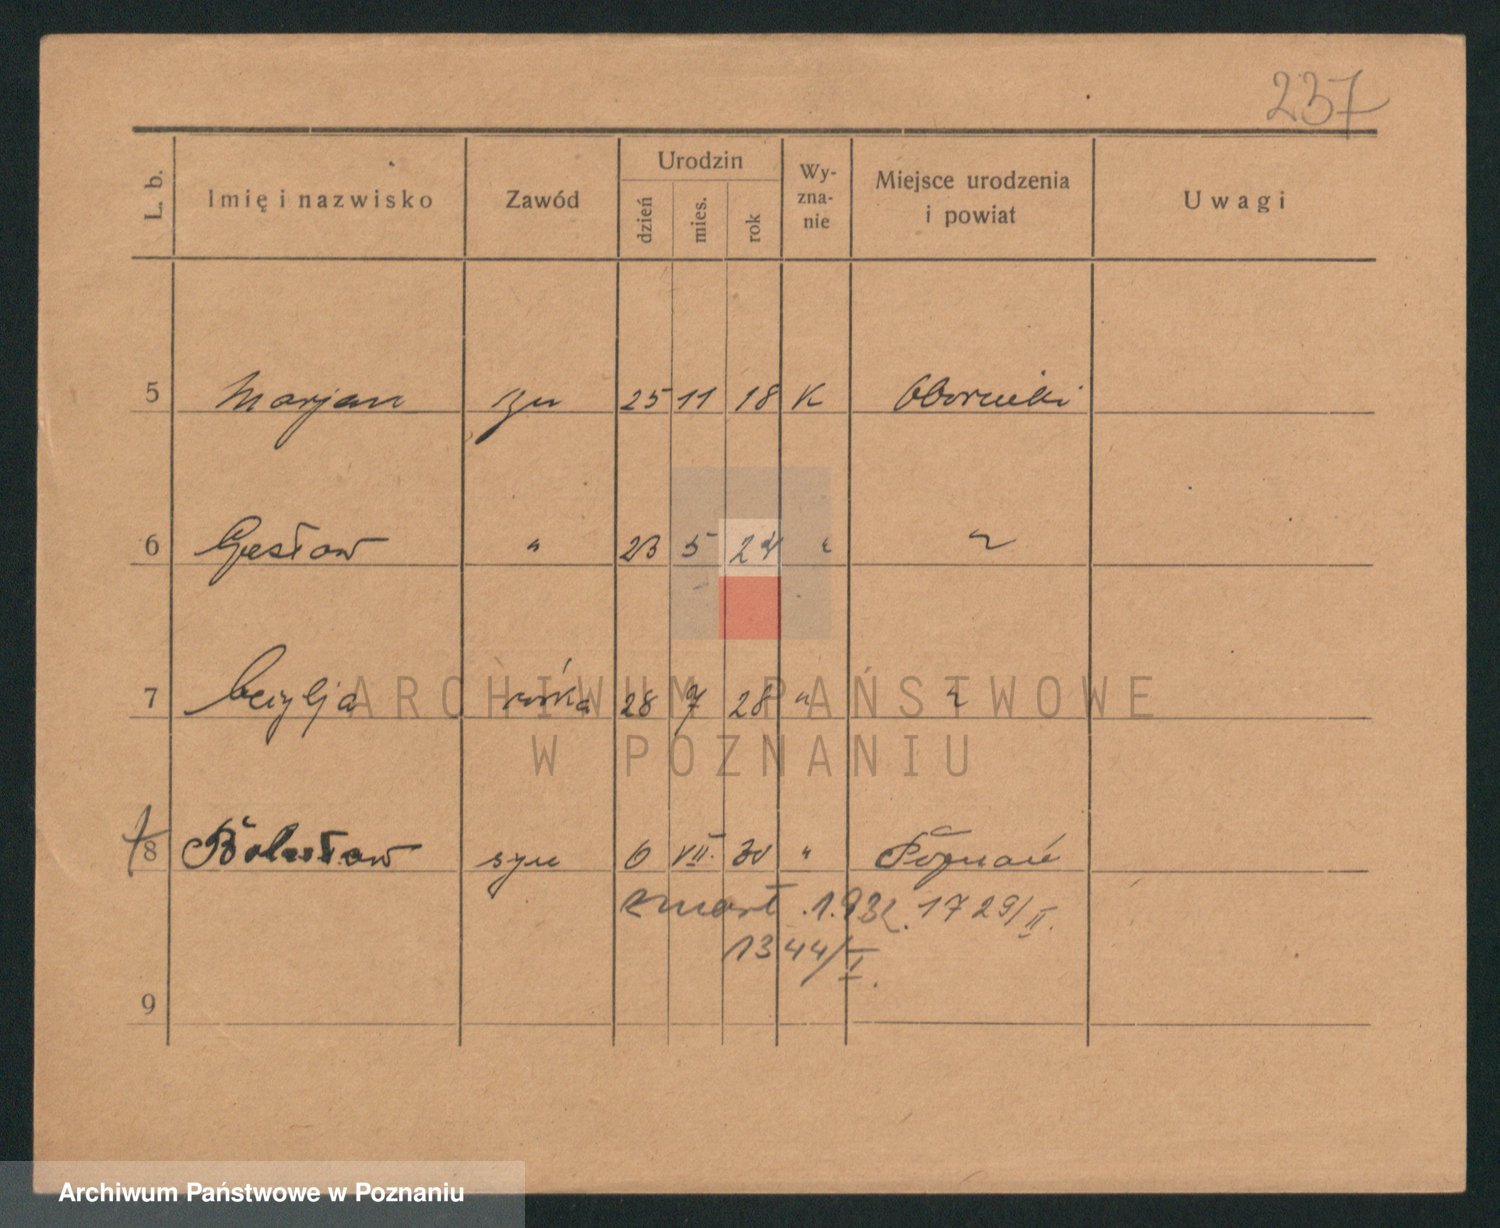 237
L. b. Imię i nazwisko Zawód Urodzin dzień mies. rok Wy-zna-nie Miejsce urodzenia i powiat Uwagi
5 Marjan syn 25 11 18 K Oborniki
6 Czesław " 23 5 24 " "
7 Cecylja córka 28 7 28 " "
8 Bolesław syn 6 VII. 30 " Poznań
zmarł 1.932. 1729/II.
1344/I.
9
ARCHIWUM PAŃSTWOWE
W POZNANIU
Archiwum Państwowe w Poznaniu